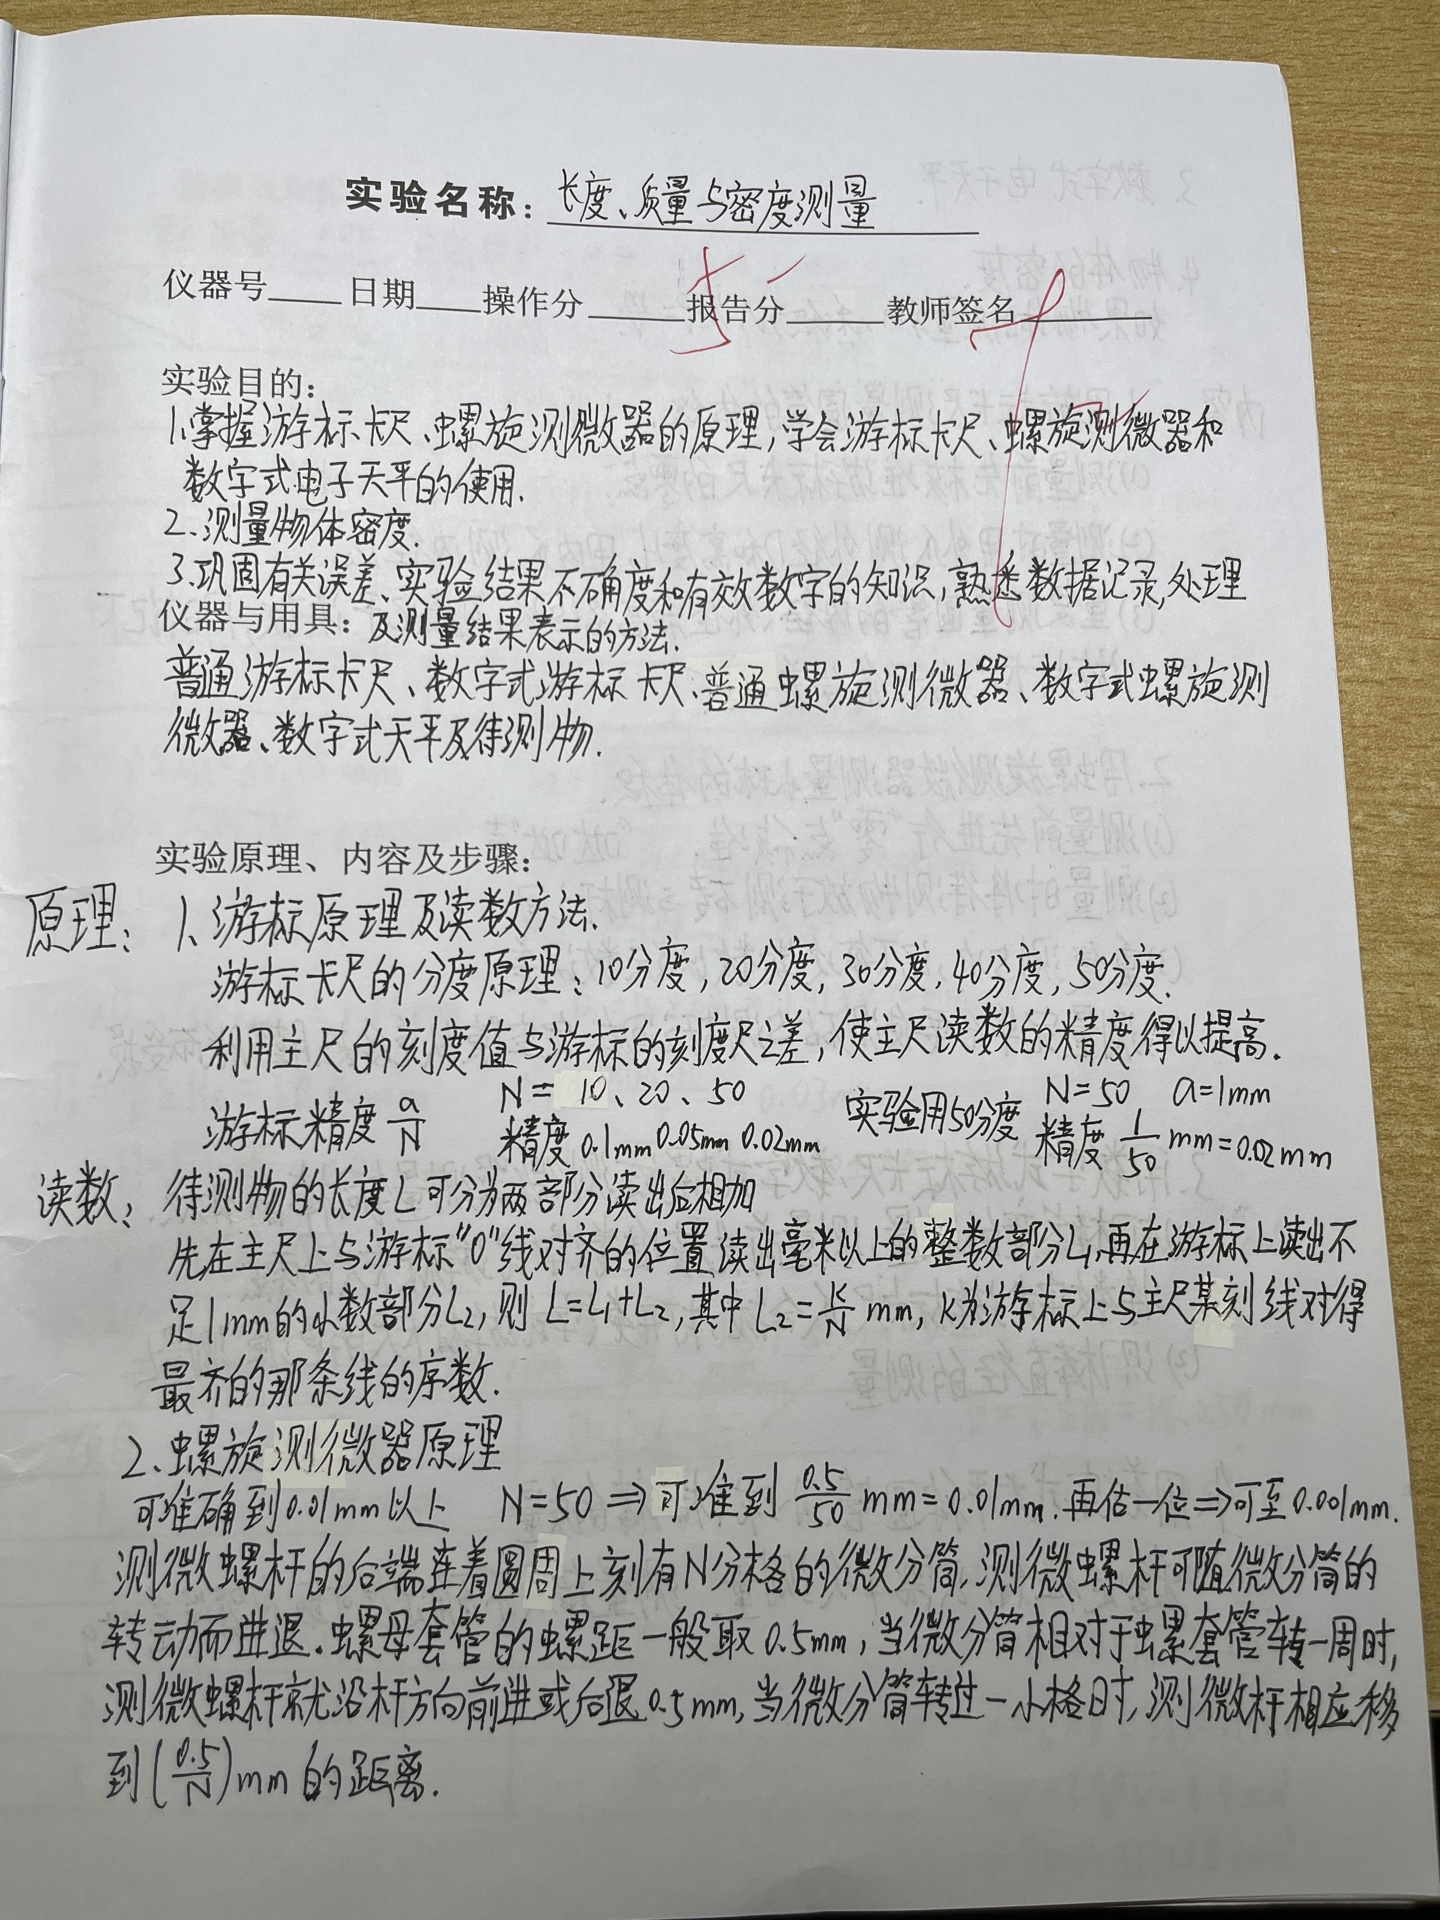 实验名称：长度、质量与密度测量
仪器号____日期____操作分____报告分____教师签名____
5
实验目的：
1.掌握游标卡尺、螺旋测微器的原理，学会游标卡尺、螺旋测微器和
数字式电子天平的使用.
2.测量物体密度.
3.巩固有关误差、实验结果不确度和有效数字的知识，熟悉数据记录，处理
仪器与用具：及测量结果表示的方法.
普通游标卡尺、数字式游标卡尺、普通螺旋测微器、数字式螺旋测
微器、数字式天平及待测物.
实验原理、内容及步骤：
原理：1、游标原理及读数方法.
游标卡尺的分度原理：10分度，20分度，30分度，40分度，50分度.
利用主尺的刻度值与游标的刻度尺之差，使主尺读数的精度得以提高.
游标精度 a/N N= 10、20、50 实验用50分度 N=50 a=1mm
精度 0.1mm 0.05mm 0.02mm 精度 1/50 mm=0.02mm
读数：待测物的长度L可分为两部分读出后相加
先在主尺上与游标“0”线对齐的位置读出毫米以上的整数部分L₁,再在游标上读出不
足1mm的小数部分L₂，则 L=L₁+L₂，其中 L₂=K/N mm，K为游标上与主尺某刻线对得
最齐的那条线的序数.
2、螺旋测微器原理
可准确到0.01mm以上 N=50 ⇒可准到 0.5/50 mm=0.01mm.再估一位⇒可至0.001mm.
测微螺杆的后端连着圆周上刻有N分格的微分筒，测微螺杆可随微分筒的
转动而进退.螺母套管的螺距一般取0.5mm，当微分筒相对于螺套管转一周时，
测微螺杆就沿杆方向前进或后退0.5mm，当微分筒转过一小格时，测微杆相应移
到(0.5/N)mm的距离.